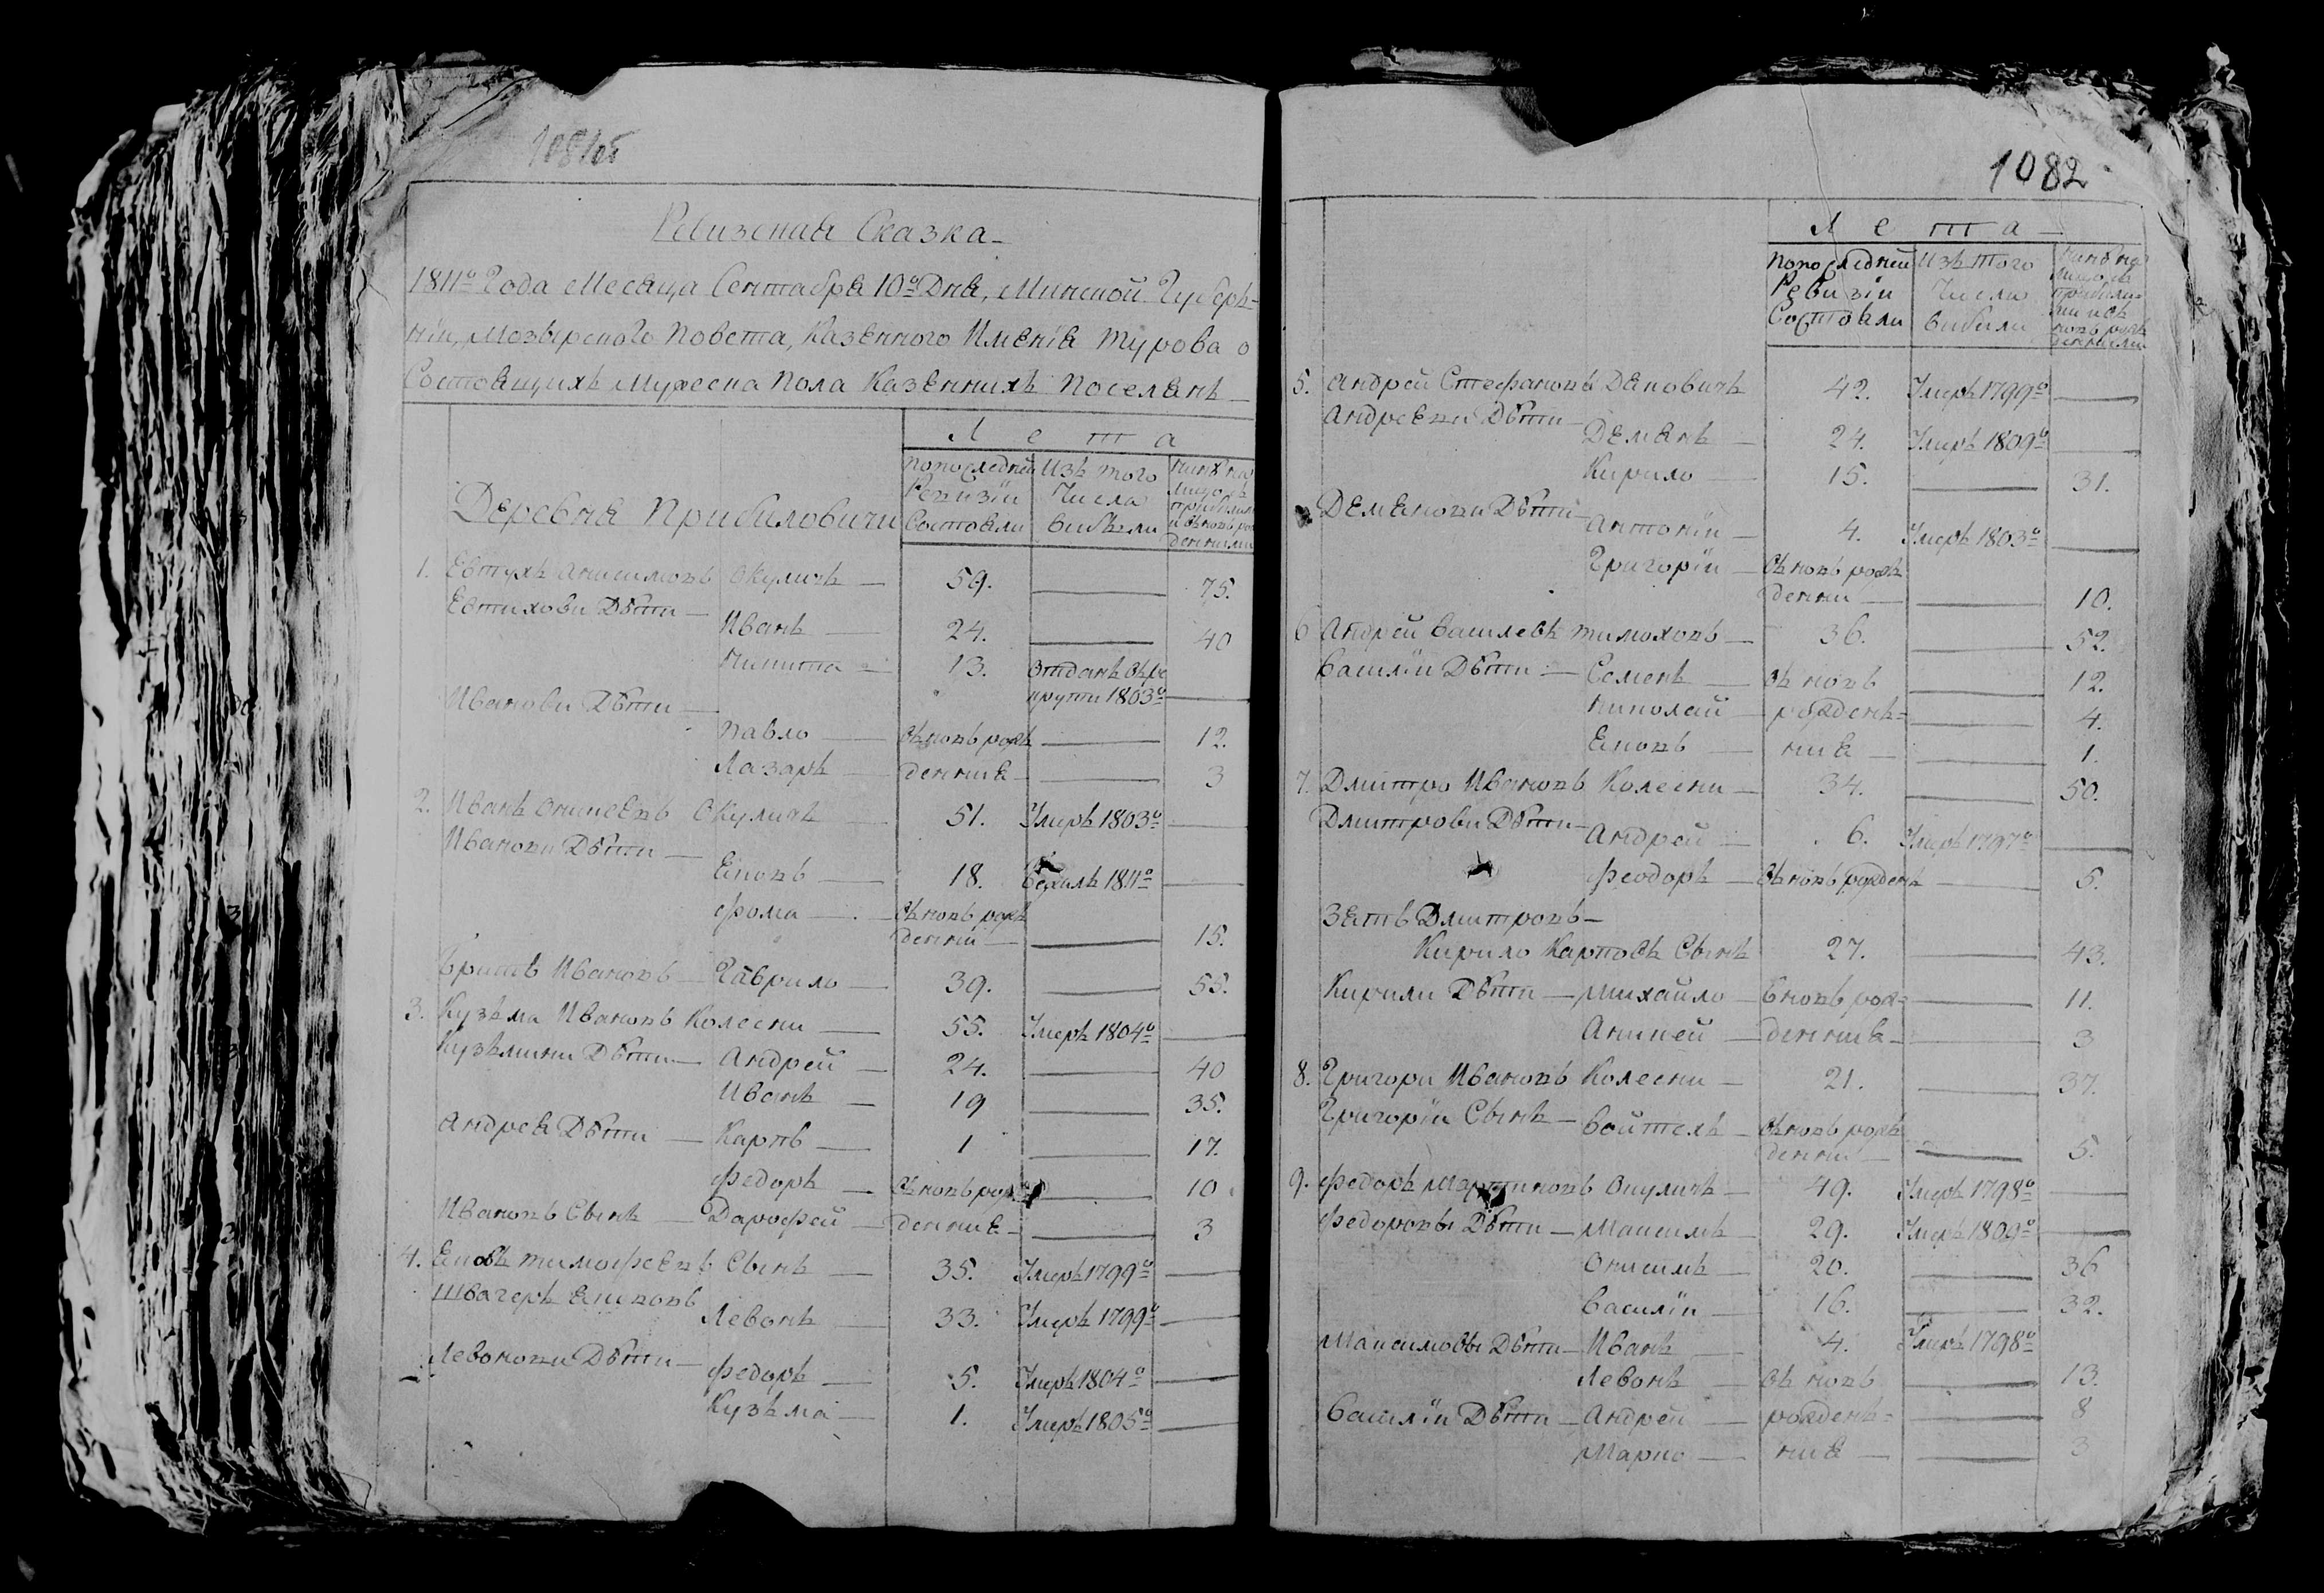 1082
Ревизская Сказка
1811го Года Месяца Сентабря 10го Дня, Минской Губерь-
нiи, Мозырского Повета, Казенного Именiя Турова о
Состоящихъ Мужеска Пола Казеннихъ Поселянъ
Лета
Попоследней Изъ того
Ревизiи Числа
Состояли выбыли
Деревня Прибиловичи
1. Евтухъ Анисимовъ Окуличъ 59. 75.
Евтихови Дѣти
Иванъ 24. 40
Никита 13. Отданъ въ ре
крути 1803го
Иванови Дѣти
Павло Вновь рож 12.
Лазаръ дення 3
2. Иванъ Окуличъ 51. Умеръ 1803го
Иванови Дѣти
Яковъ 18. 1811го
Фома Вновь рож
деннй 15.
Братъ Ивановъ Гаврило 39. 55.
3. Кузьма Ивановъ Колесни 55. Умеръ 1804го
Кузьмини Дѣти Андрей 24. 40
Иванъ 19 35.
Андрея Дѣти Карпъ 1 17.
Федоръ Вновь рож 10
Ивановъ Сынъ Дарофей дення 3
4. Тимофеевъ Сынъ 35. Умеръ 1799го
Швагеръ Яковов Левонъ 33. Умеръ 1799го
Левонови Дѣти Федоръ 5. Умеръ 1804го
Кузьма 1. Умеръ 1805го
Лета
Попоследней Изъ того
Ревизiи Числа
Состояли выбыли
5. Андрей Стефановъ Деновичъ 42. Умеръ 1799го
Андрееви Дѣти
Демянъ 24. Умеръ 1809го
Кирило 15. 31.
Демянови Дѣти
Антонiй 4. Умеръ 1803го
Григорiй Вновь рож
деннй 10.
6 Андрей Василевъ Тимоховъ 36. 52.
Василiи Дѣти Семенъ Въ новь 12.
Николай рожденъ- 4.
Яковъ ния 1.
7. Дмитро Ивановъ Колесни 34. 50.
Дмитрови Дѣти
Андрей 6. Умеръ 1797го
Феодоръ Вновь рожденъ 5.
Зять Дмитровъ
Кирило Карповъ Сынъ 27. 43.
Кирили Дѣти Михайло Вновь рож- 11.
Аникей дення 3
8. Григори Ивановъ Колесни 21. 37.
Григорiи Сынъ Войтехъ Вновь рож
деннй 5.
9. Федоръ Мартиновъ Окуличъ 49. Умеръ 1798го
Федоровы Дѣти Максимъ 29. Умеръ 1809го
Онисимъ 20. 36
Василiй 16. 32.
Максимовы Дѣти Иванъ 4. Умеръ 1798го
Левонъ Въ новь 13.
Василiи Дѣти Андрей рожденъ- 8
Марко ния 3